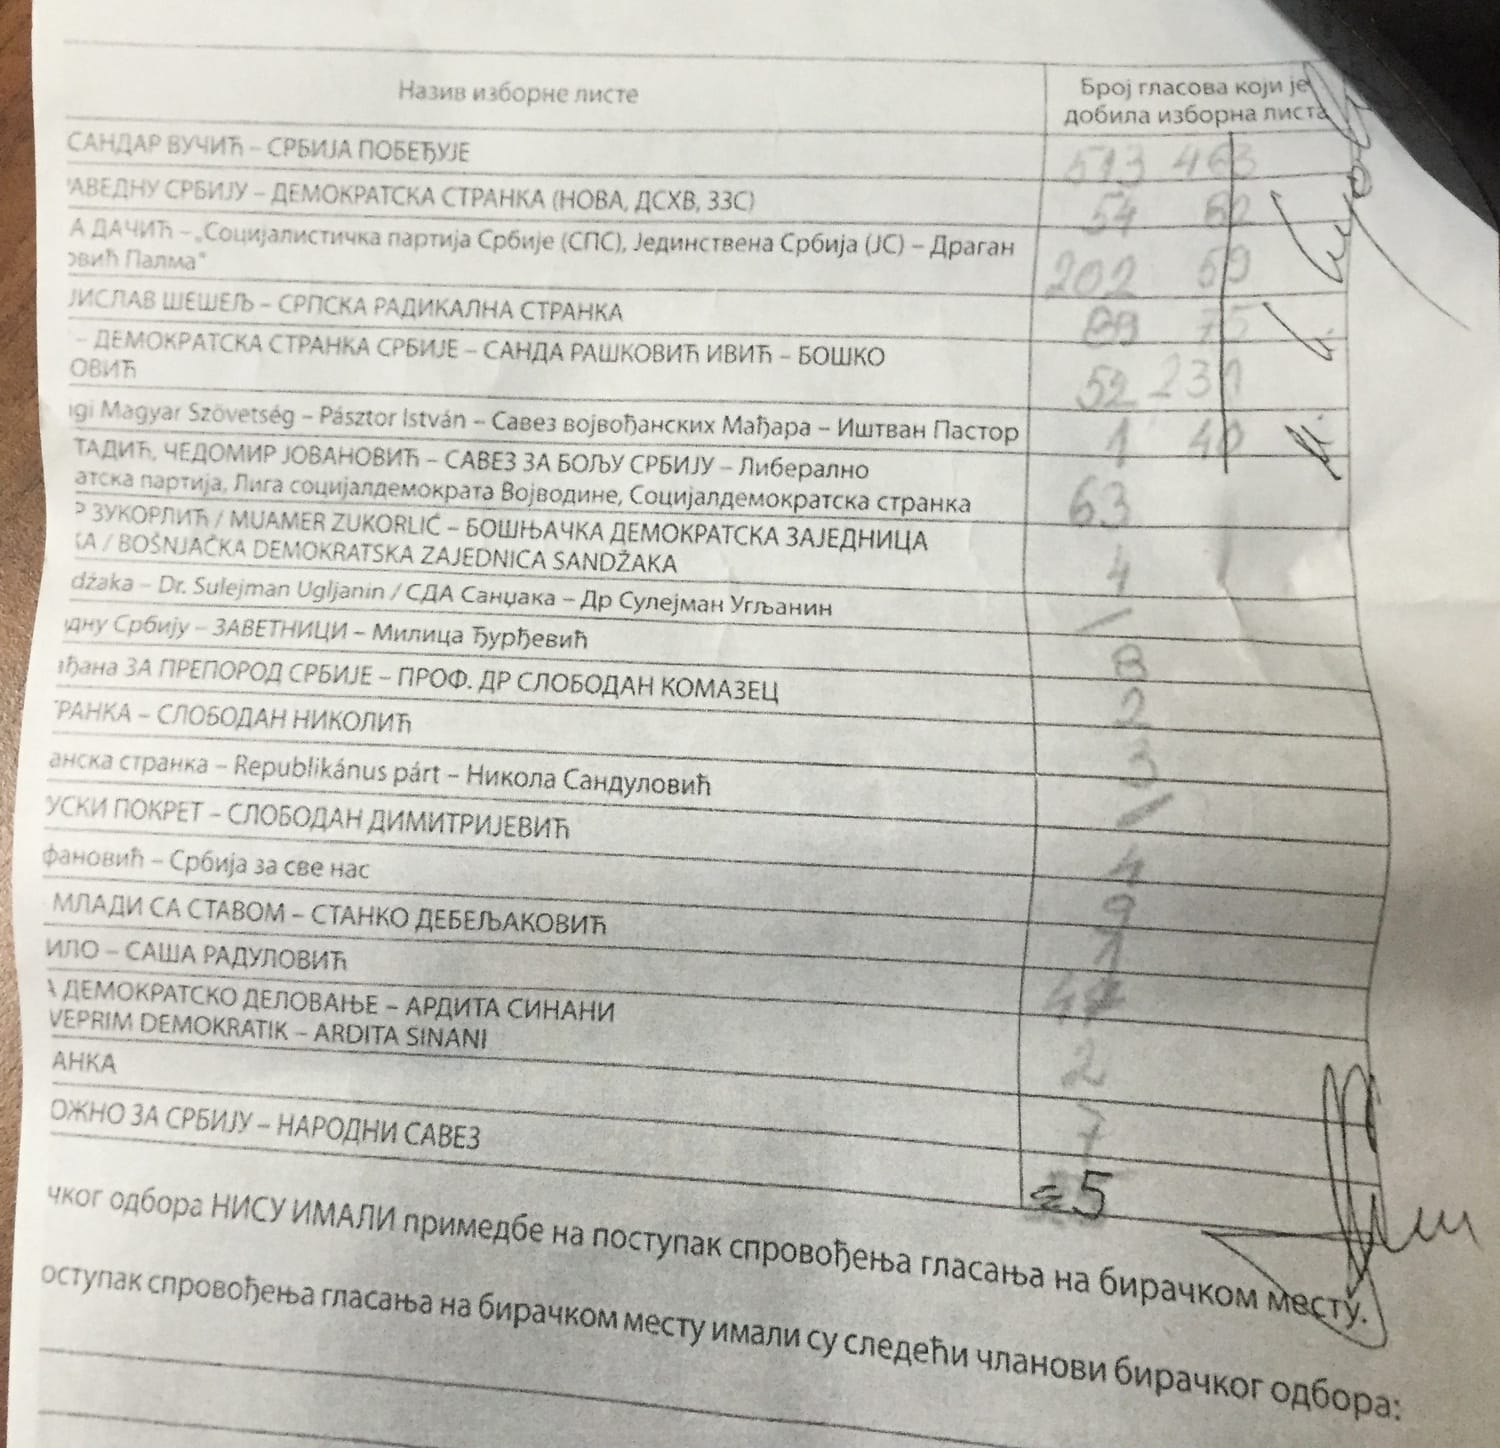 Назив изборне листе
Број гласова који је
добила изборна листа
САНДАР ВУЧИЋ – СРБИЈА ПОБЕЂУЈЕ
513 463
АВЕДНУ СРБИЈУ – ДЕМОКРАТСКА СТРАНКА (НОВА, ДСХВ, ЗЗС)
54
А ДАЧИЋ – „Социјалистичка партија Србије (СПС), Јединствена Србија (ЈС) – Драган
овић Палма"
202 59
ЈИСЛАВ ШЕШЕЉ – СРПСКА РАДИКАЛНА СТРАНКА
75
– ДЕМОКРАТСКА СТРАНКА СРБИЈЕ – САНДА РАШКОВИЋ ИВИЋ – БОШКО
ОВИЋ
52 231
gi Magyar Szövetség – Pásztor István – Савез војвођанских Мађара – Иштван Пастор
1 40
ТАДИЋ, ЧЕДОМИР ЈОВАНОВИЋ – САВЕЗ ЗА БОЉУ СРБИЈУ – Либерално
атска партија, Лига социјалдемократа Војводине, Социјалдемократска странка
63
Р ЗУКОРЛИЋ / MUAMER ZUKORLIĆ – БОШЊАЧКА ДЕМОКРАТСКА ЗАЈЕДНИЦА
КА / BOŠNJAČKA DEMOKRATSKA ZAJEDNICA SANDŽAKA
4
džaka – Dr. Sulejman Ugljanin / СДА Санџака – Др Сулејман Угљанин
/
дну Србију – ЗАВЕТНИЦИ – Милица Ђурђевић
8
ђана ЗА ПРЕПОРОД СРБИЈЕ – ПРОФ. ДР СЛОБОДАН КОМАЗЕЦ
2
ТРАНКА – СЛОБОДАН НИКОЛИЋ
3
анска странка – Republikánus párt – Никола Сандуловић
/
УСКИ ПОКРЕТ – СЛОБОДАН ДИМИТРИЈЕВИЋ
4
фановић – Србија за све нас
9
МЛАДИ СА СТАВОМ – СТАНКО ДЕБЕЉАКОВИЋ
1
ИЛО – САША РАДУЛОВИЋ
А ДЕМОКРАТСКО ДЕЛОВАЊЕ – АРДИТА СИНАНИ
VEPRIM DEMOKRATIK – ARDITA SINANI
2
АНКА
ОЖНО ЗА СРБИЈУ – НАРОДНИ САВЕЗ
5
чког одбора НИСУ ИМАЛИ примедбе на поступак спровођења гласања на бирачком месту.
оступак спровођења гласања на бирачком месту имали су следећи чланови бирачког одбора: